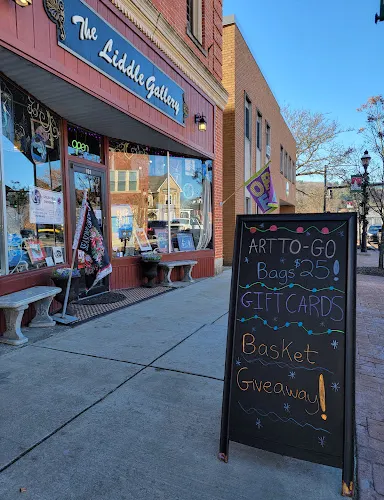 The Liddle Gallery
open
OPEN
ART TO-GO
Bags $25!
GIFT CARDS
Basket
Giveaway!